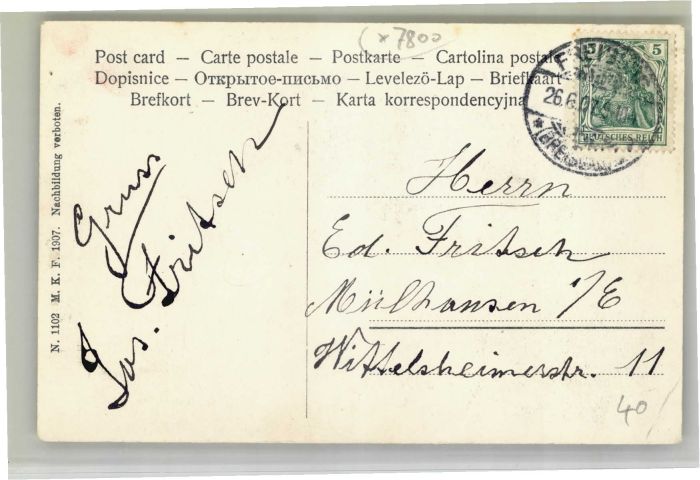 (x 7800
Post card – Carte postale – Postkarte – Cartolina postale
Dopisnice – Открытое-письмо – Levelezö-Lap – Briefkaart
Brefkort – Brev-Kort – Karta korrespondencyjna
5 5
DEUTSCHES REICH
26.6.07
N. 1102 M. K. F. 1907. Nachbildung verboten.
Gruss
Jos. Fritsch
Herrn
Ed. Fritsch
Mülhausen i/E
Wittelsheimerstr. 11
40